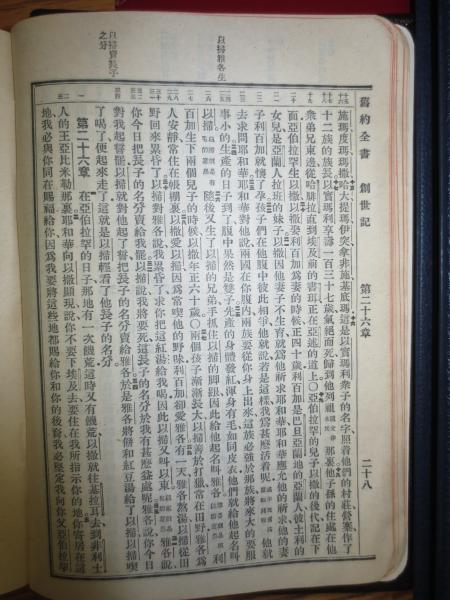 舊約全書 創世記 第二十六章 二十八
以掃雅各生
以掃賣長子
之分
施瑪度瑪瑪撒哈大提瑪伊突拿非施基底瑪這是以實瑪利衆子的名字照着他們的村莊營寨作了
十二族的族長以實瑪利享壽一百三十七歲氣絕而死歸到他列祖那裏他子孫的住處在他
衆弟兄東邊從哈腓拉直到埃及前的書珥正在亞述的道上○亞伯拉罕的兒子以撒的後代記在下
面亞伯拉罕生以撒以撒娶利百加爲妻的時候正四十歲利百加是巴旦亞蘭地的亞蘭人彼土利的
女兒是亞蘭人拉班的妹子以撒因他妻子不生育就爲他祈求耶和華耶和華應允他的祈求他的妻
子利百加就懷了孕孩子們在他腹中彼此相爭他就說若是這樣我爲甚麽活着呢他就
去求問耶和華耶和華對他說兩國在你腹內兩族要從你身上出來這族必強於那族將來大的要服
事小的生產的日子到了腹中果然是雙子先產的身體發紅渾身有毛如同皮衣他們就給他起名叫
以掃隨後又生了以掃的兄弟手抓住以掃的脚跟因此給他起名叫雅各利
百加生下兩個兒子的時候以撒年正六十歲○兩個孩子漸漸長大以掃善於打獵常在田野雅各爲
人安靜常住在帳棚裏以撒愛以掃因爲常喫他的野味利百加却愛雅各有一天雅各熬湯以掃從田
野回來累昏了以掃對雅各說我累昏了求你把這紅湯給我喝因此以掃又叫以東雅各說
你今日把長子的名分賣給我罷以掃說我將要死這長子的名分於我有甚麽益處呢雅各說你今日
對我起誓罷以掃就對他起了誓把長子的名分賣給雅各於是雅各將餅和紅豆湯給了以掃以掃喫
了喝了便起來走了這就是以掃輕看了他長子的名分
第二十六章 在亞伯拉罕的日子那地有一次饑荒這時又有饑荒以撒就往基拉耳去到非利士
人的王亞比米勒那裏耶和華向以撒顯現說你不要下埃及去要住在我所指示你的地你寄居在這
地我必與你同在賜福給你因爲我要將這些地都賜給你和你的後裔我必堅定我向你父亞伯拉罕